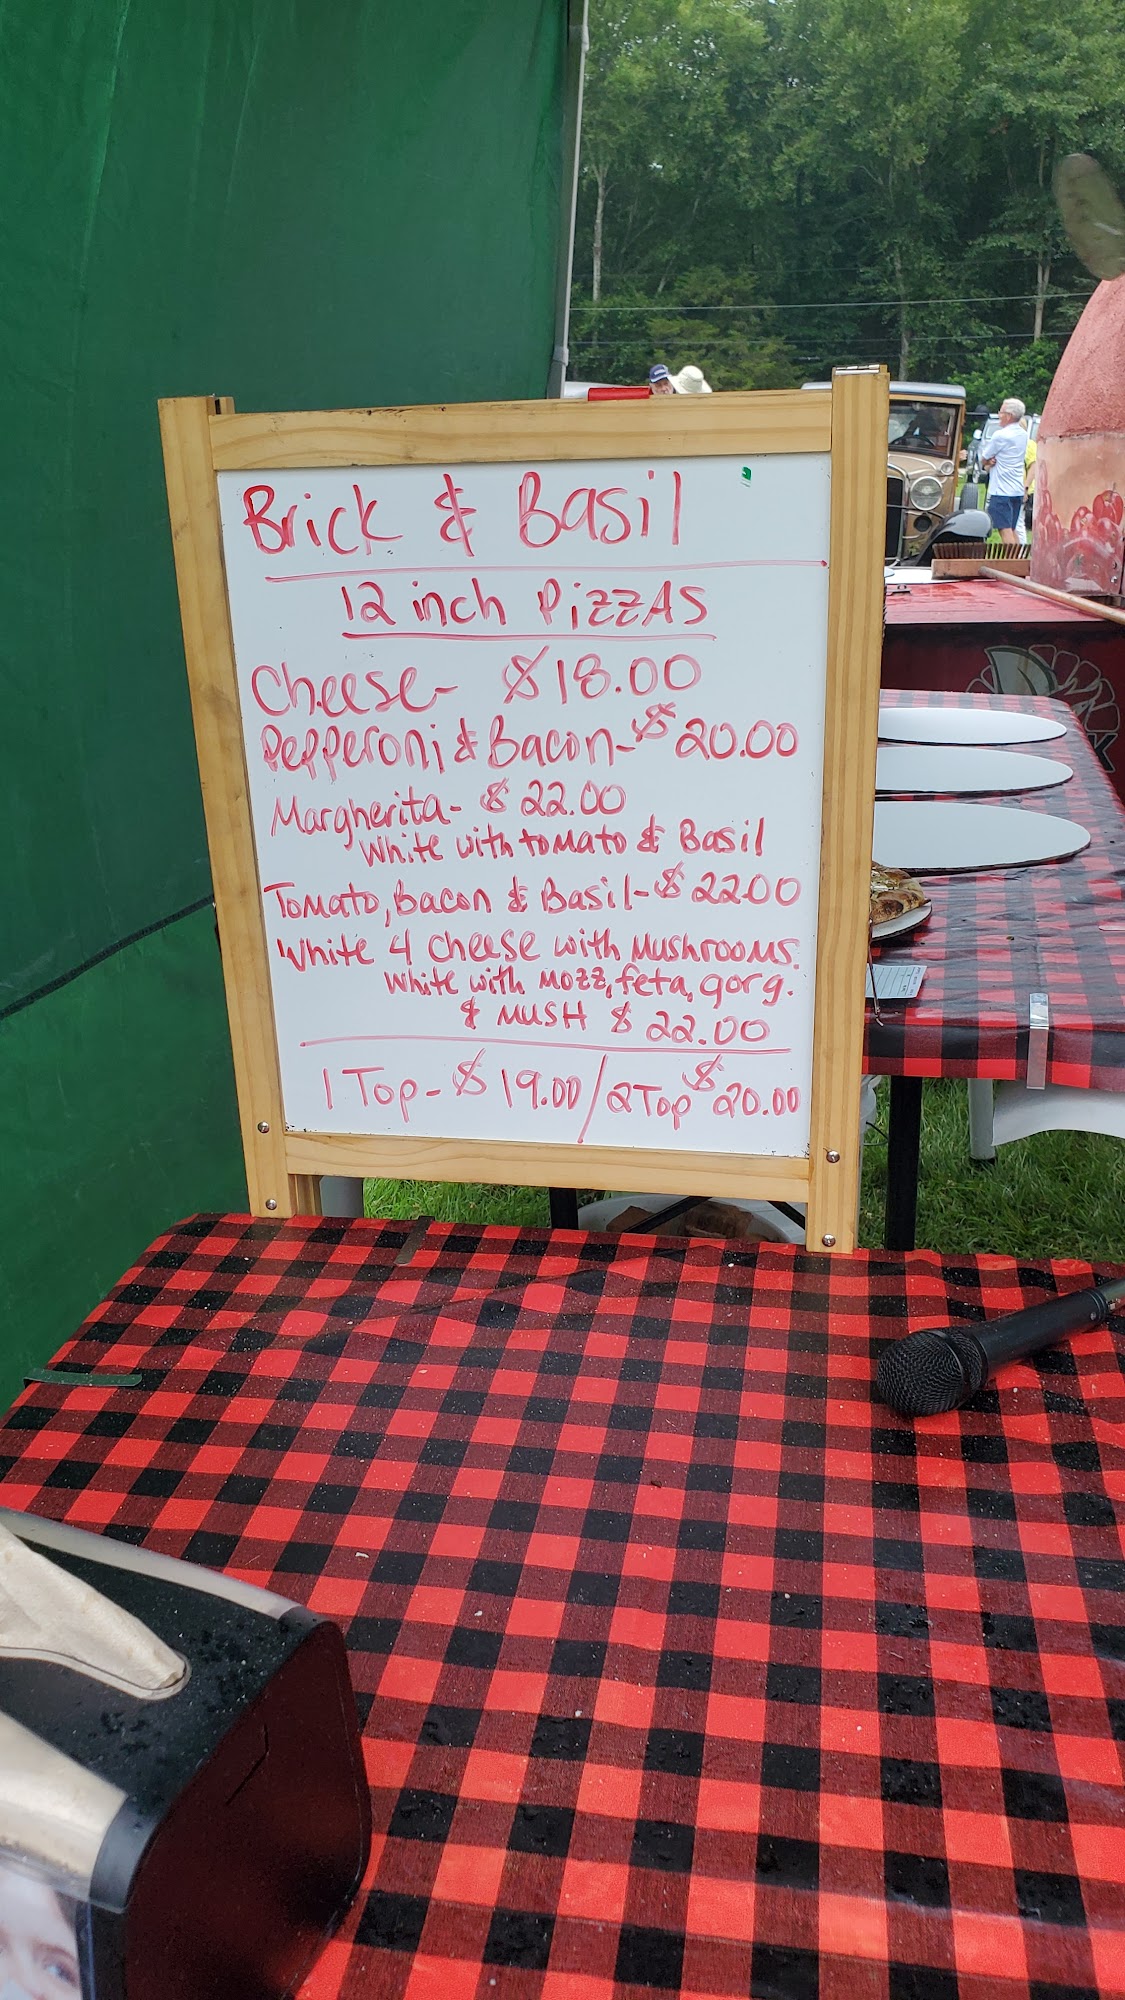 Brick & Basil
12 inch PIZZAS
Cheese- $18.00
Pepperoni & Bacon- $20.00
Margherita- $22.00
White with tomato & Basil
Tomato, Bacon & Basil- $22.00
White 4 cheese with Mushrooms.
White with mozz, feta, gorg.
& MUSH $22.00
1 Top- $19.00/2 Top $20.00